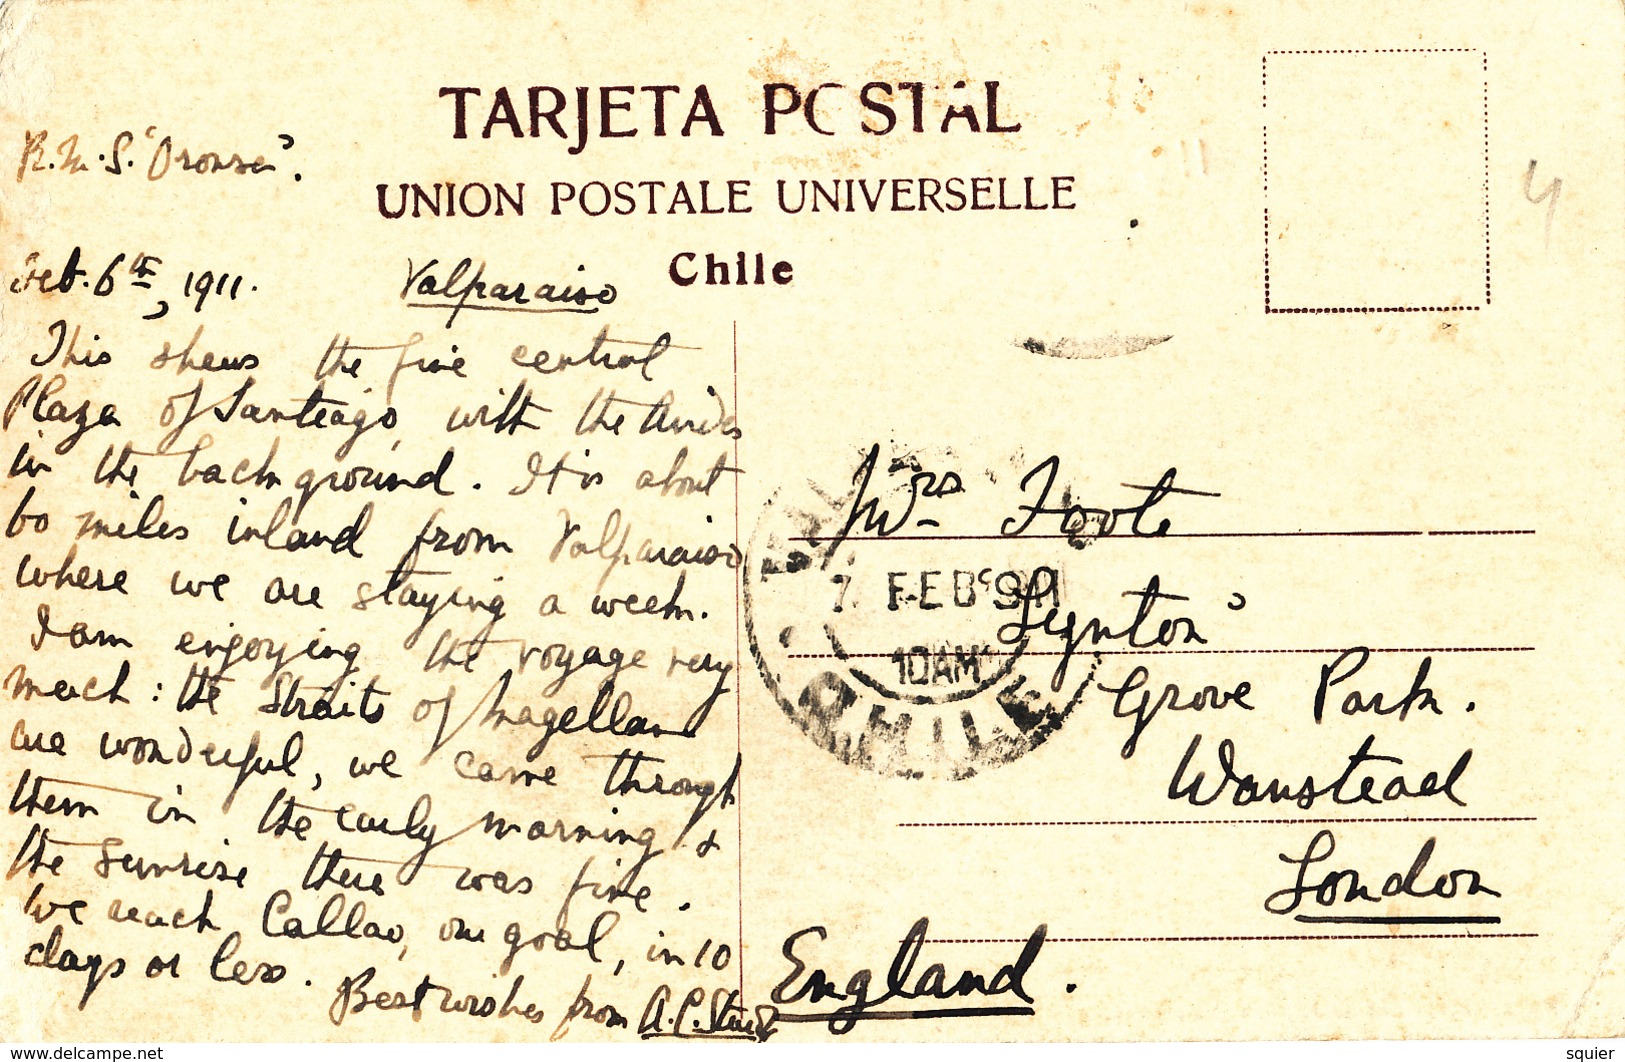 TARJETA POSTAL
UNION POSTALE UNIVERSELLE
Chile
R.M.S. 'Oronsa'.
Feb. 6th, 1911. Valparaiso
This shews the fine central
Plaza of Santiago, with the Andes
in the background. It is about
60 miles inland from Valparaiso
where we are staying a week.
I am enjoying the voyage very
much: the Straits of Magellan
are wonderful, we came through
them in the early morning &
the sunrise there was fine.
We reach Callao, our goal, in 10
days or less.
Best wishes from A.C.
Mrs Foote
Lynton'
Grove Park.
Wanstead
London
England.
7 FEB 911
10AM
CHILE
4
www.delcampe.net
squier